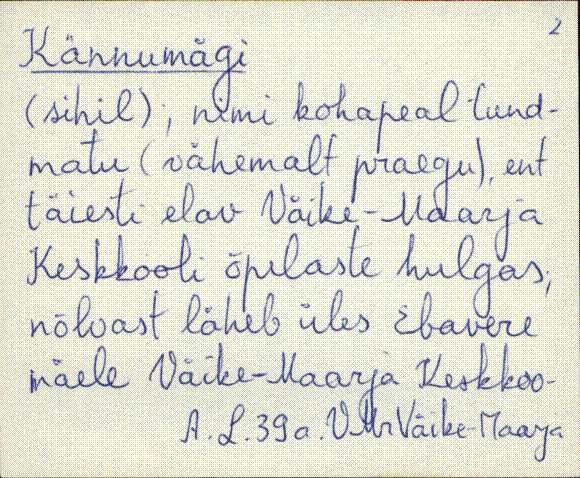 2
Kännumägi
(sihil); nimi kohapeal tund-
matu (vähemalt praegu), ent
täiesti elav Väike-Maarja
Keskkooli õpilaste hulgas;
nõlvast läheb üles Ebavere
mäele Väike-Maarja Keskkoo-
A. L. 39 a. VMr Väike-Maarja